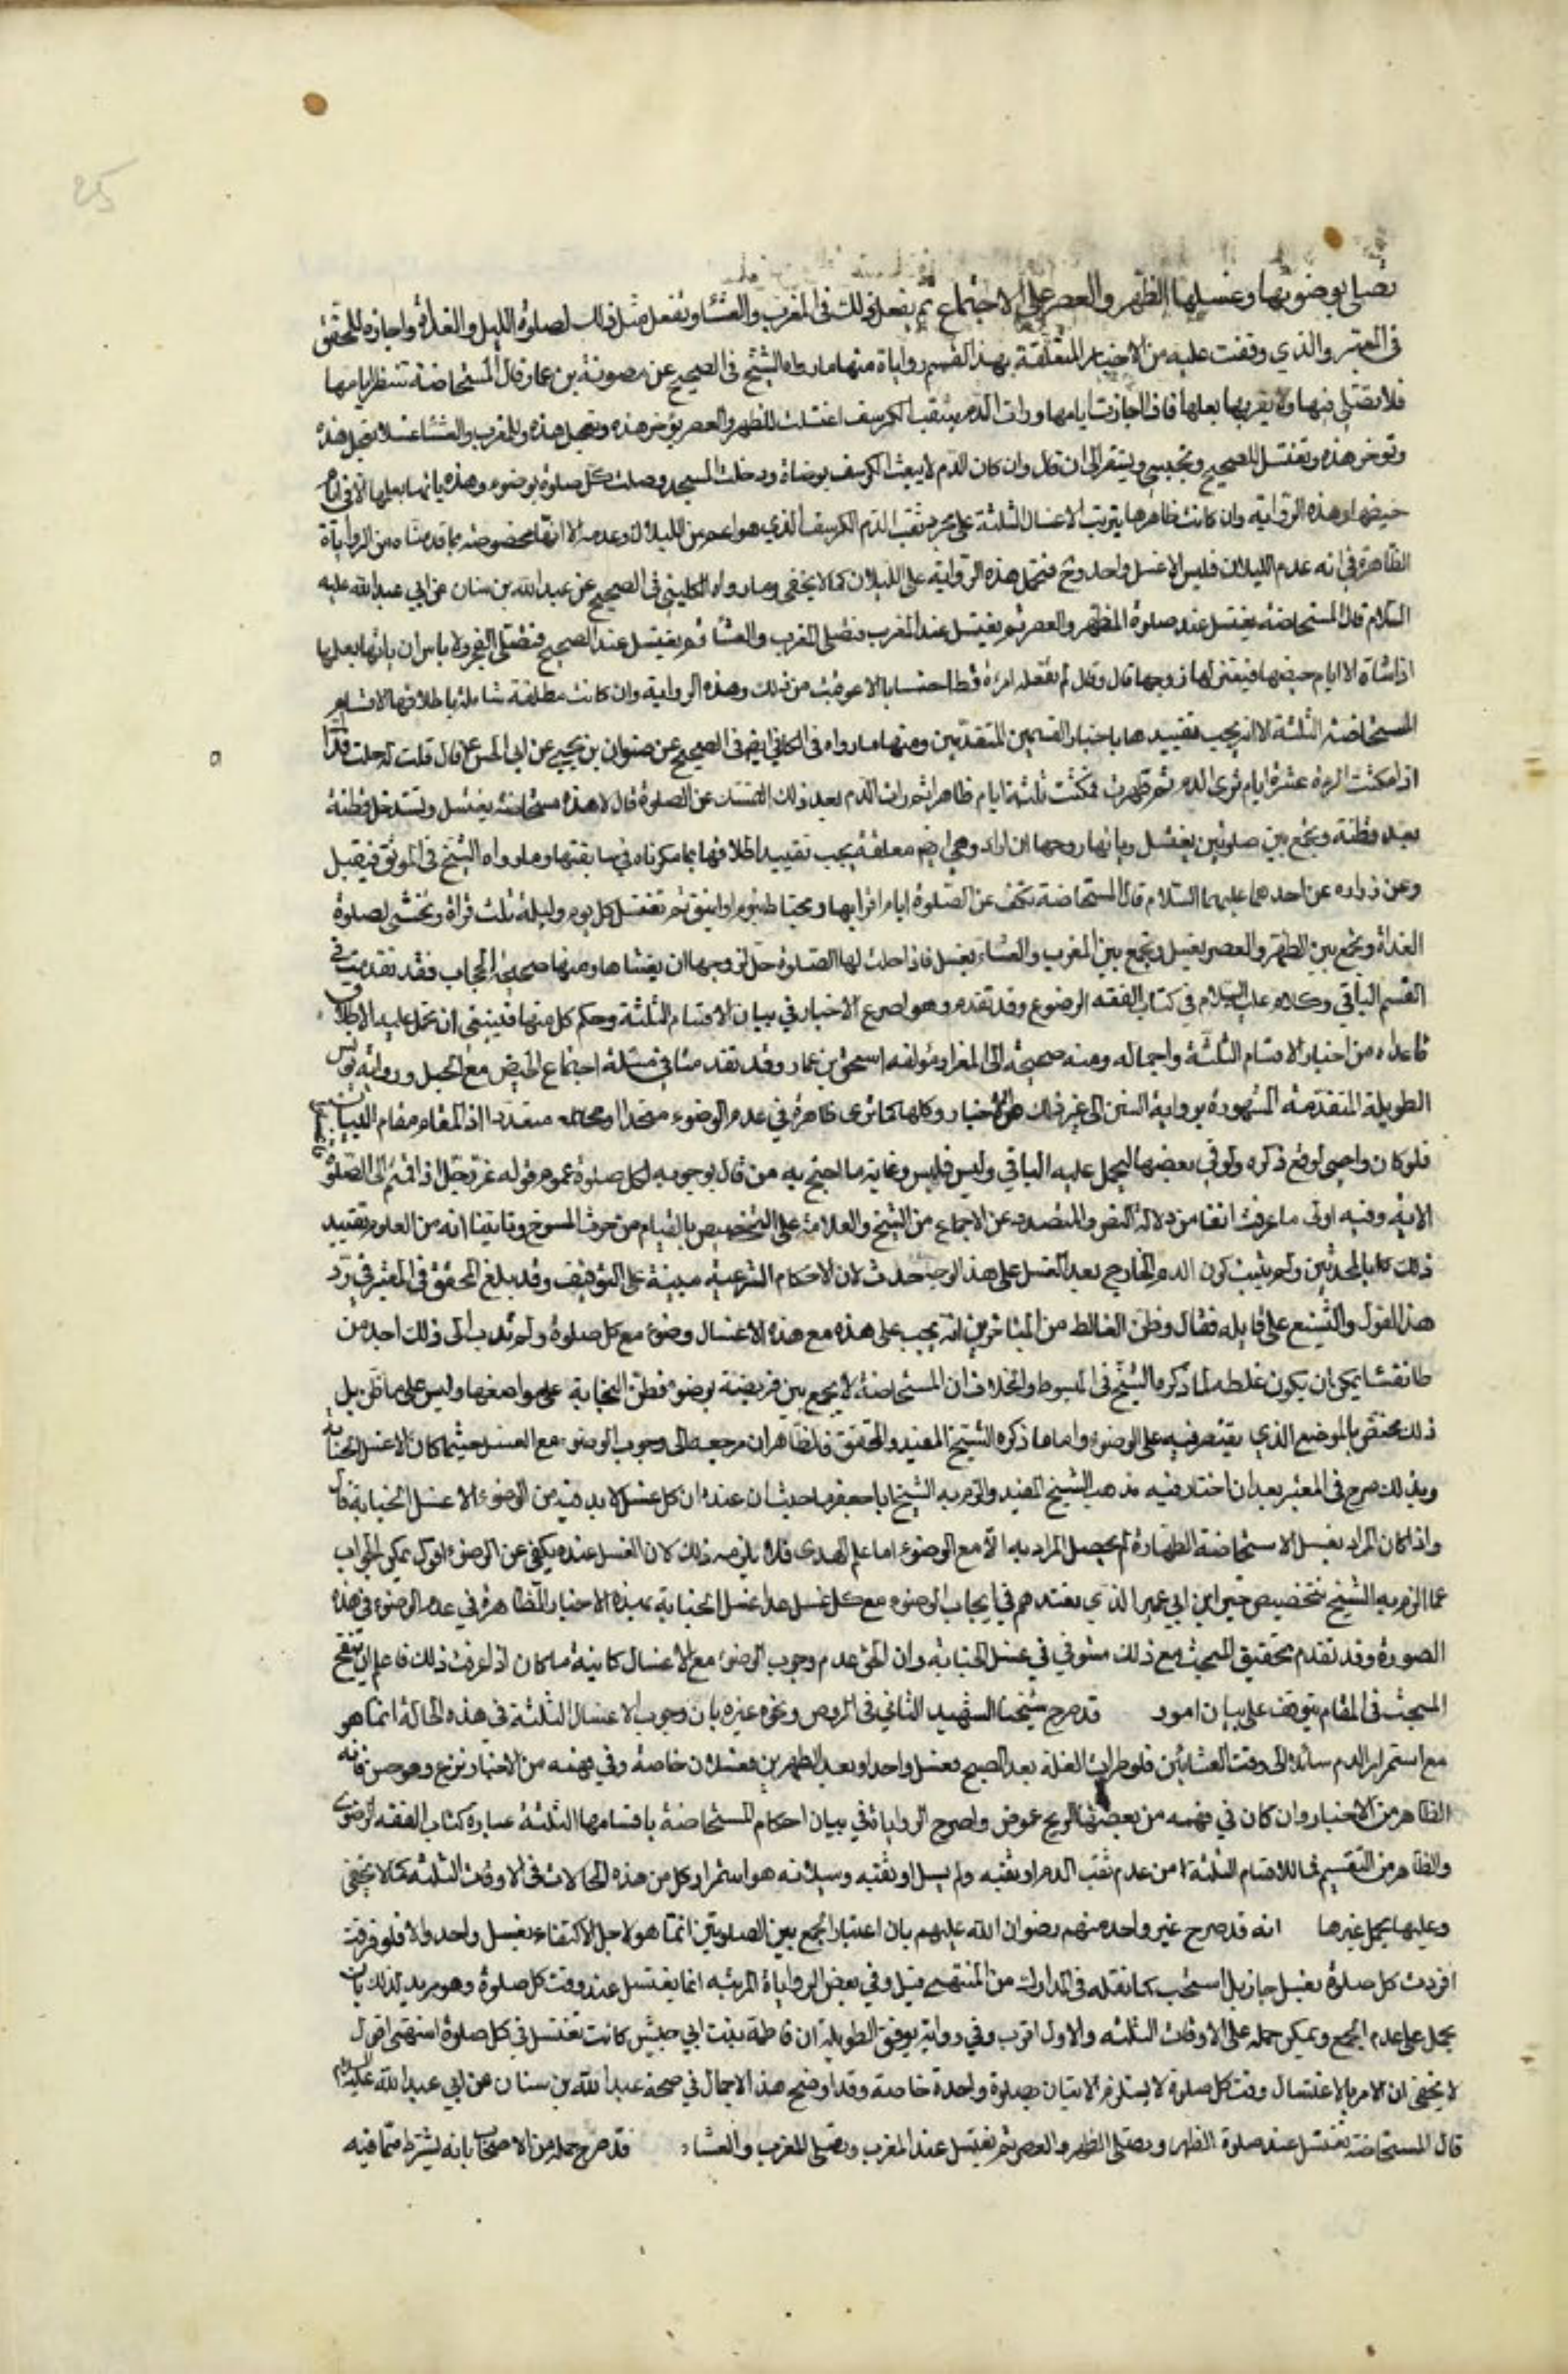 25
تصلي بوضوئها وغسلها الظهر والعصر على الاجتماع ثم يفعل ذلك في المغرب والعشاء وتفعل مثل ذلك لصلوة الليل والغداة واجازه المحقق
في المعتبر والذي وقفت عليه من الاخبار المتعلقة بهذا القسم روايات منها ما رواه الشيخ في الصحيح عن معوية بن عمار قال المستحاضة تنتظر ايامها
فلا تصلي فيها ولا يقربها بعلها فاذا جازت ايامها ورات الدم يثقب الكرسف اغتسلت للظهر والعصر يؤخر هذه وتعجل هذه وللمغرب والعشاء غسلا تعجل هذه
وتوخر هذه وتغتسل للصبح وتحتشي وتستثفر الى ان قال وان كان الدم لا يثقب الكرسف توضات ودخلت المسجد وصلت كل صلوة بوضوء وهذه ياتيها بعلها الا في ايام
حيضها وهذه الرواية وان كانت ظاهرها يترتب الاغسال الثلثة على مجرد ثقب الدم الكرسف الذي هو اعم من السيلان وعدمه الا انها مخصوصة بما قدمناه من الروايات
الظاهرة في انه عدم السيلان فليس الا غسل واحد وح فتحمل هذه الرواية على السيلان كما لا يخفى وما رواه الكليني في الصحيح عن عبدالله بن سنان عن ابي عبدالله عليه
السلام قال المستحاضة يغتسل عند صلوة الظهر والعصر ثم يغتسل عند المغرب فتصلي المغرب والعشاء ثم يغتسل عند الصبح فتصلي الفجر ولا باس ان ياتيها بعلها
اذا شاء الا ايام حيضها فيعتزلها زوجها قال وقال لم تفعله امرءة قط احتسابا الا عوفيت من ذلك وهذه الرواية وان كانت مطلقة شاملة باطلاقها لاقسام
المستحاضة الثلثة الا انه يجب تقييدها باخبار القسمين المتقدمين ومنها ما رواه في الكافي ايض في الصحيح عن صفوان بن يحيى عن ابي الحسن ع قال قلت له جعلت فداك
اذا مكثت المرءة عشرة ايام ترى الدم ثم طهرت فمكثت ثلثة ايام طاهرا ثم رات الدم بعد ذلك اتمسك عن الصلوة قال لا هذه مستحاضة يغتسل وتستدخل قطنة
بعد قطنة ويجمع بين صلوتين بغسل وياتيها زوجها ان اراد وهي ايض مطلقة يجب تقييد اطلاقها بما ذكرناه في سابقتها وما رواه الشيخ في الموثق فيقبل
وعن زراره عن احدهما عليهما السلام قال المستحاضة تكف عن الصلوة ايام اقرائها وتحتاط بيوم او اثنين ثم تغتسل كل يوم وليلة ثلث مرات وتحتشي لصلوة
الغداة ويجمع بين الظهر والعصر بغسل ويجمع بين المغرب والعشاء بغسل فاذا حلت لها الصلوة حل لزوجها ان يغشاها ومنها صحيحة الحجاب فقد تقدمت في
القسم الباقي وكلامه عليه السلام في كتاب الفقه الرضوي وقد تقدم وهو اصرح الاخبار في بيان الاقسام الثلثة وحكم كل منها فينبغي ان يحمل عليه الاطلاق
ما عداه من اخبار الاقسام الثلثة واجماله ومنه صحيحة ابي المغرا وموثقه اسحق بن عمار وقد تقدمتا في مسئلة اجتماع الحيض مع الحبل ورواية يونس
الطويلة المتقدمة المشهورة برواية السنن الى غير ذلك من الاخبار وكلها كما ترى ظاهرة في عدم الوضوء متحدا او متعددا اذ المقام مقام البيان
فلو كان واجبا لوقع ذكره ولو في بعضها ليحمل عليه الباقي وليس فليس وغاية ما احتج به من قال بوجوبه لكل صلوة عموم قوله عز وجل اذا قمتم الى الصلوة
الاية وفيه اولا ما عرفت انفا من دلالة النص والمتصدد عن الاجماع من الشيخ والعلامة على التخصيص بالقيام من حدث النوم وثانيا انه من المعلوم تقييد
ذلك بالمحدثين ولم يثبت كون الدم الخارج بعد الغسل على هذا الوجه حدث لان الاحكام الشرعية مبنية على التوقيف وقد بلغ المحقق في المعتبر في رد
هذا القول والتشنيع على قايله فقال وظن الغالط من المتاخرين انه يجب على هذه مع هذه الاغسال وضوء مع كل صلوة ولم يذهب الى ذلك احد من
طائفتنا يمكن ان يكون غلطه لما ذكره الشيخ في المبسوط والخلاف ان المستحاضة لا يجمع بين فريضة بوضوء فظن انسحابه على مواضعها وليس على ما ظن بل
ذلك مختص بالموضع الذي يقتصر فيه على الوضوء واما ما ذكره الشيخ المفيد والمحقق فالظاهر ان مرجعه الى وجوب الوضوء مع الغسل حيثما كان الا غسل الجنابة
وبذلك صرح في المعتبر بعد ان اختار فيه مذهب الشيخ المفيد والزم به الشيخ ابا جعفر حيث ان عنده ان كل غسل لا بد فيه من الوضوء الا غسل الجنابة قال
واذا كان المراد بغسل الاستحاضة الطهارة لم يحصل المراد به الا مع الوضوء اما علم الهدى فلا يلزمه ذلك لان الغسل عنده يكفي عن الوضوء اقول يمكن الجواب
عما الزم به الشيخ بتخصيص خبر ابن ابي عمير الذي معتمدهم في ايجاب الوضوء مع كل غسل عدا غسل الجنابة بهذه الاخبار الظاهرة في عدم الوضوء في هذه
الصورة وقد تقدم تحقيق المبحث مع ذلك مستوفى في غسل الجنابة وان الحق عدم وجوب الوضوء مع الاغسال كاينة ما كان اذا عرفت ذلك فاعلم ان تنقيح
المبحث في المقام يتوقف على بيان امور قد صرح شيخنا الشهيد الثاني في الروض ونحوه غيره بان وجوب الاغسال الثلثة في هذه الحالة انما هو
مع استمرار الدم سائلا الى وقت العشائين فلو طرات القلة بعد الصبح فغسل واحد او بعد الظهرين فغسلان خاصة وفي فهمه من الاخبار نوع غموض فانه
الظاهر من الاخبار وان كان في فهمه من بعضها نوع غموض واصرح الروايات في بيان احكام المستحاضة باقسامها الثلثة عبارة كتاب الفقه الرضوي
والظاهر من التقسيم فيها للاقسام الثلثة من عدم ثقب الدم او ثقبه ولم يسل او ثقبه وسيلانه هو استمرار كل من هذه الحالات في الاوقات الثلثة كما لا يخفى
وعليها يحمل غيرها انه قد صرح غير واحد منهم رضوان الله عليهم بان اعتبار الجمع بين الصلوتين انما هو لاجل الاكتفاء بغسل واحد والا فلو فرقت
افردت كل صلوة بغسل جاز بل استحب كما نقله في المدارك من المنتهى قيل وفي بعض الروايات المرتبه انما يغتسل عند وقت كل صلوة وهو مريد لذلك بان
يحمل على عدم الجمع ويمكن حمله على الاوقات الثلثه والاول اقرب وفي رواية يونس الطويلة ان فاطمة بنت ابي حبيش كانت تغتسل في كل صلوة انتهى اقول
لا يخفى ان الامر بالاغتسال وقت كل صلوة لا يستلزم الاتيان بصلوة واحدة خاصة وقد اوضح هذا الاجمال في صحيحة عبدالله بن سنان عن ابي عبدالله عليه السلام
قال المستحاضة تغتسل عند صلوة الظهر وتصلي الظهر والعصر ثم تغتسل عند المغرب وتصلي المغرب والعشاء قد صرح جملة من الاصحاب بانه يشترط مما فيه